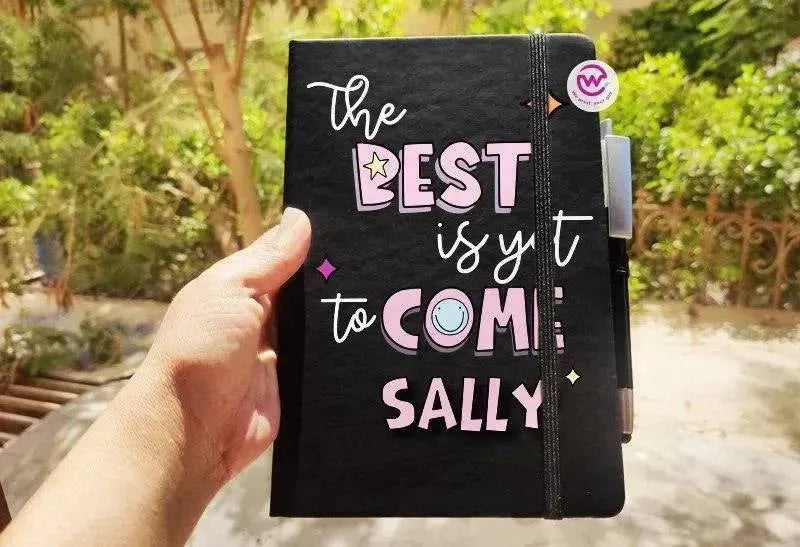 The
BEST
is yet
to COME
SALLY
W
We print your gift